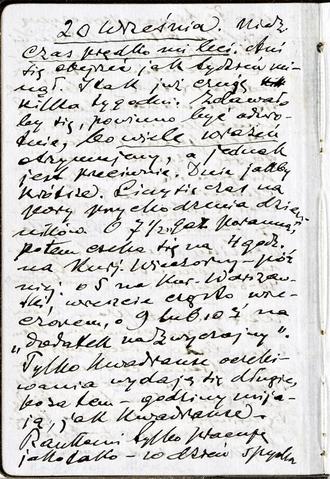 20 września. Niedz.
czas prędko mi leci. Ani
się obejrzę jak tydzień mi-
nął. I tak już czuję
kilka tygodni. Zdawało
by się, powinno być odwro-
tnie, bo wiele wrażeń
otrzymujemy, a jednak
jest przeciwnie. Dnie jakby
krótsze. Liczy się czas na
pory przychodzenia dzien-
ników. O 7½ Gaz. poranna,
potem czeka się na 4 godz.
na Kurj. Wieczorny – póź
niej o 5 na Kur. Warszaw-
ski, wreszcie często wie-
czorem, o 9 lub 10ej na
„dodatek nadzwyczajny".
Tylko kwadranse oczeki-
wania wydają się długie,
poza tem – godziny mija-
ją, jak kwadranse.
Rankami tylko pracuję
jako tako – w dzień